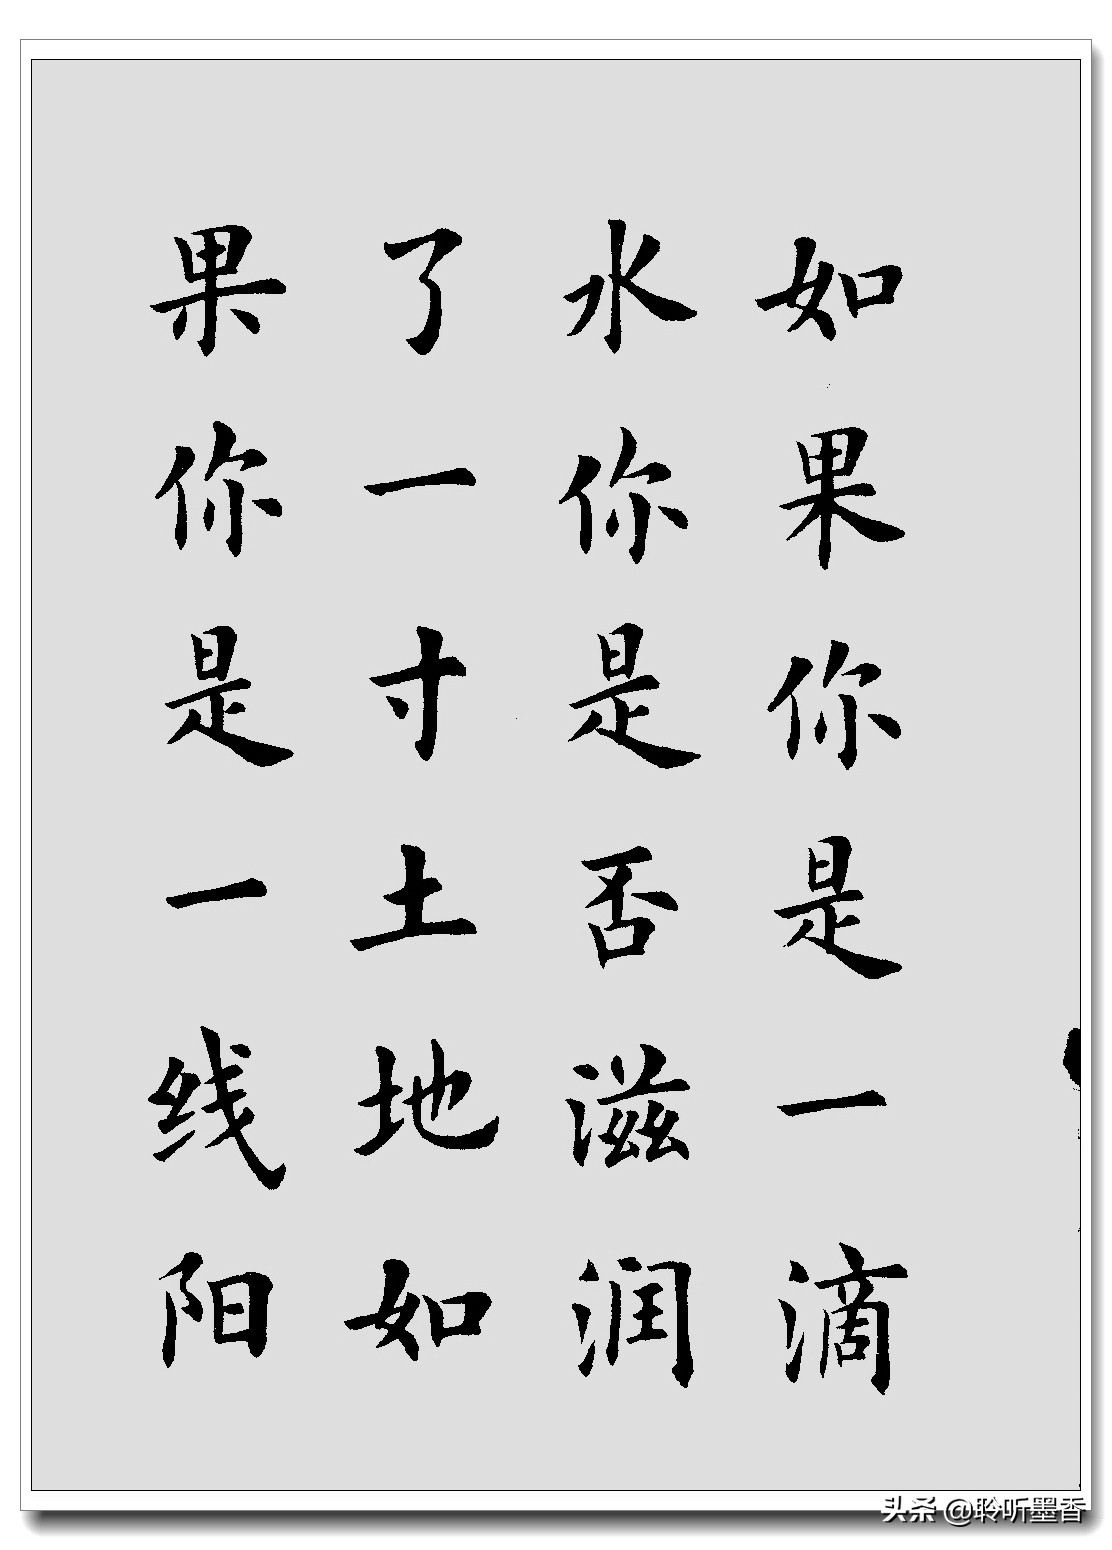 如果你是一滴
水你是否滋润
了一寸土地如
果你是一线阳
头条 @聆听墨香